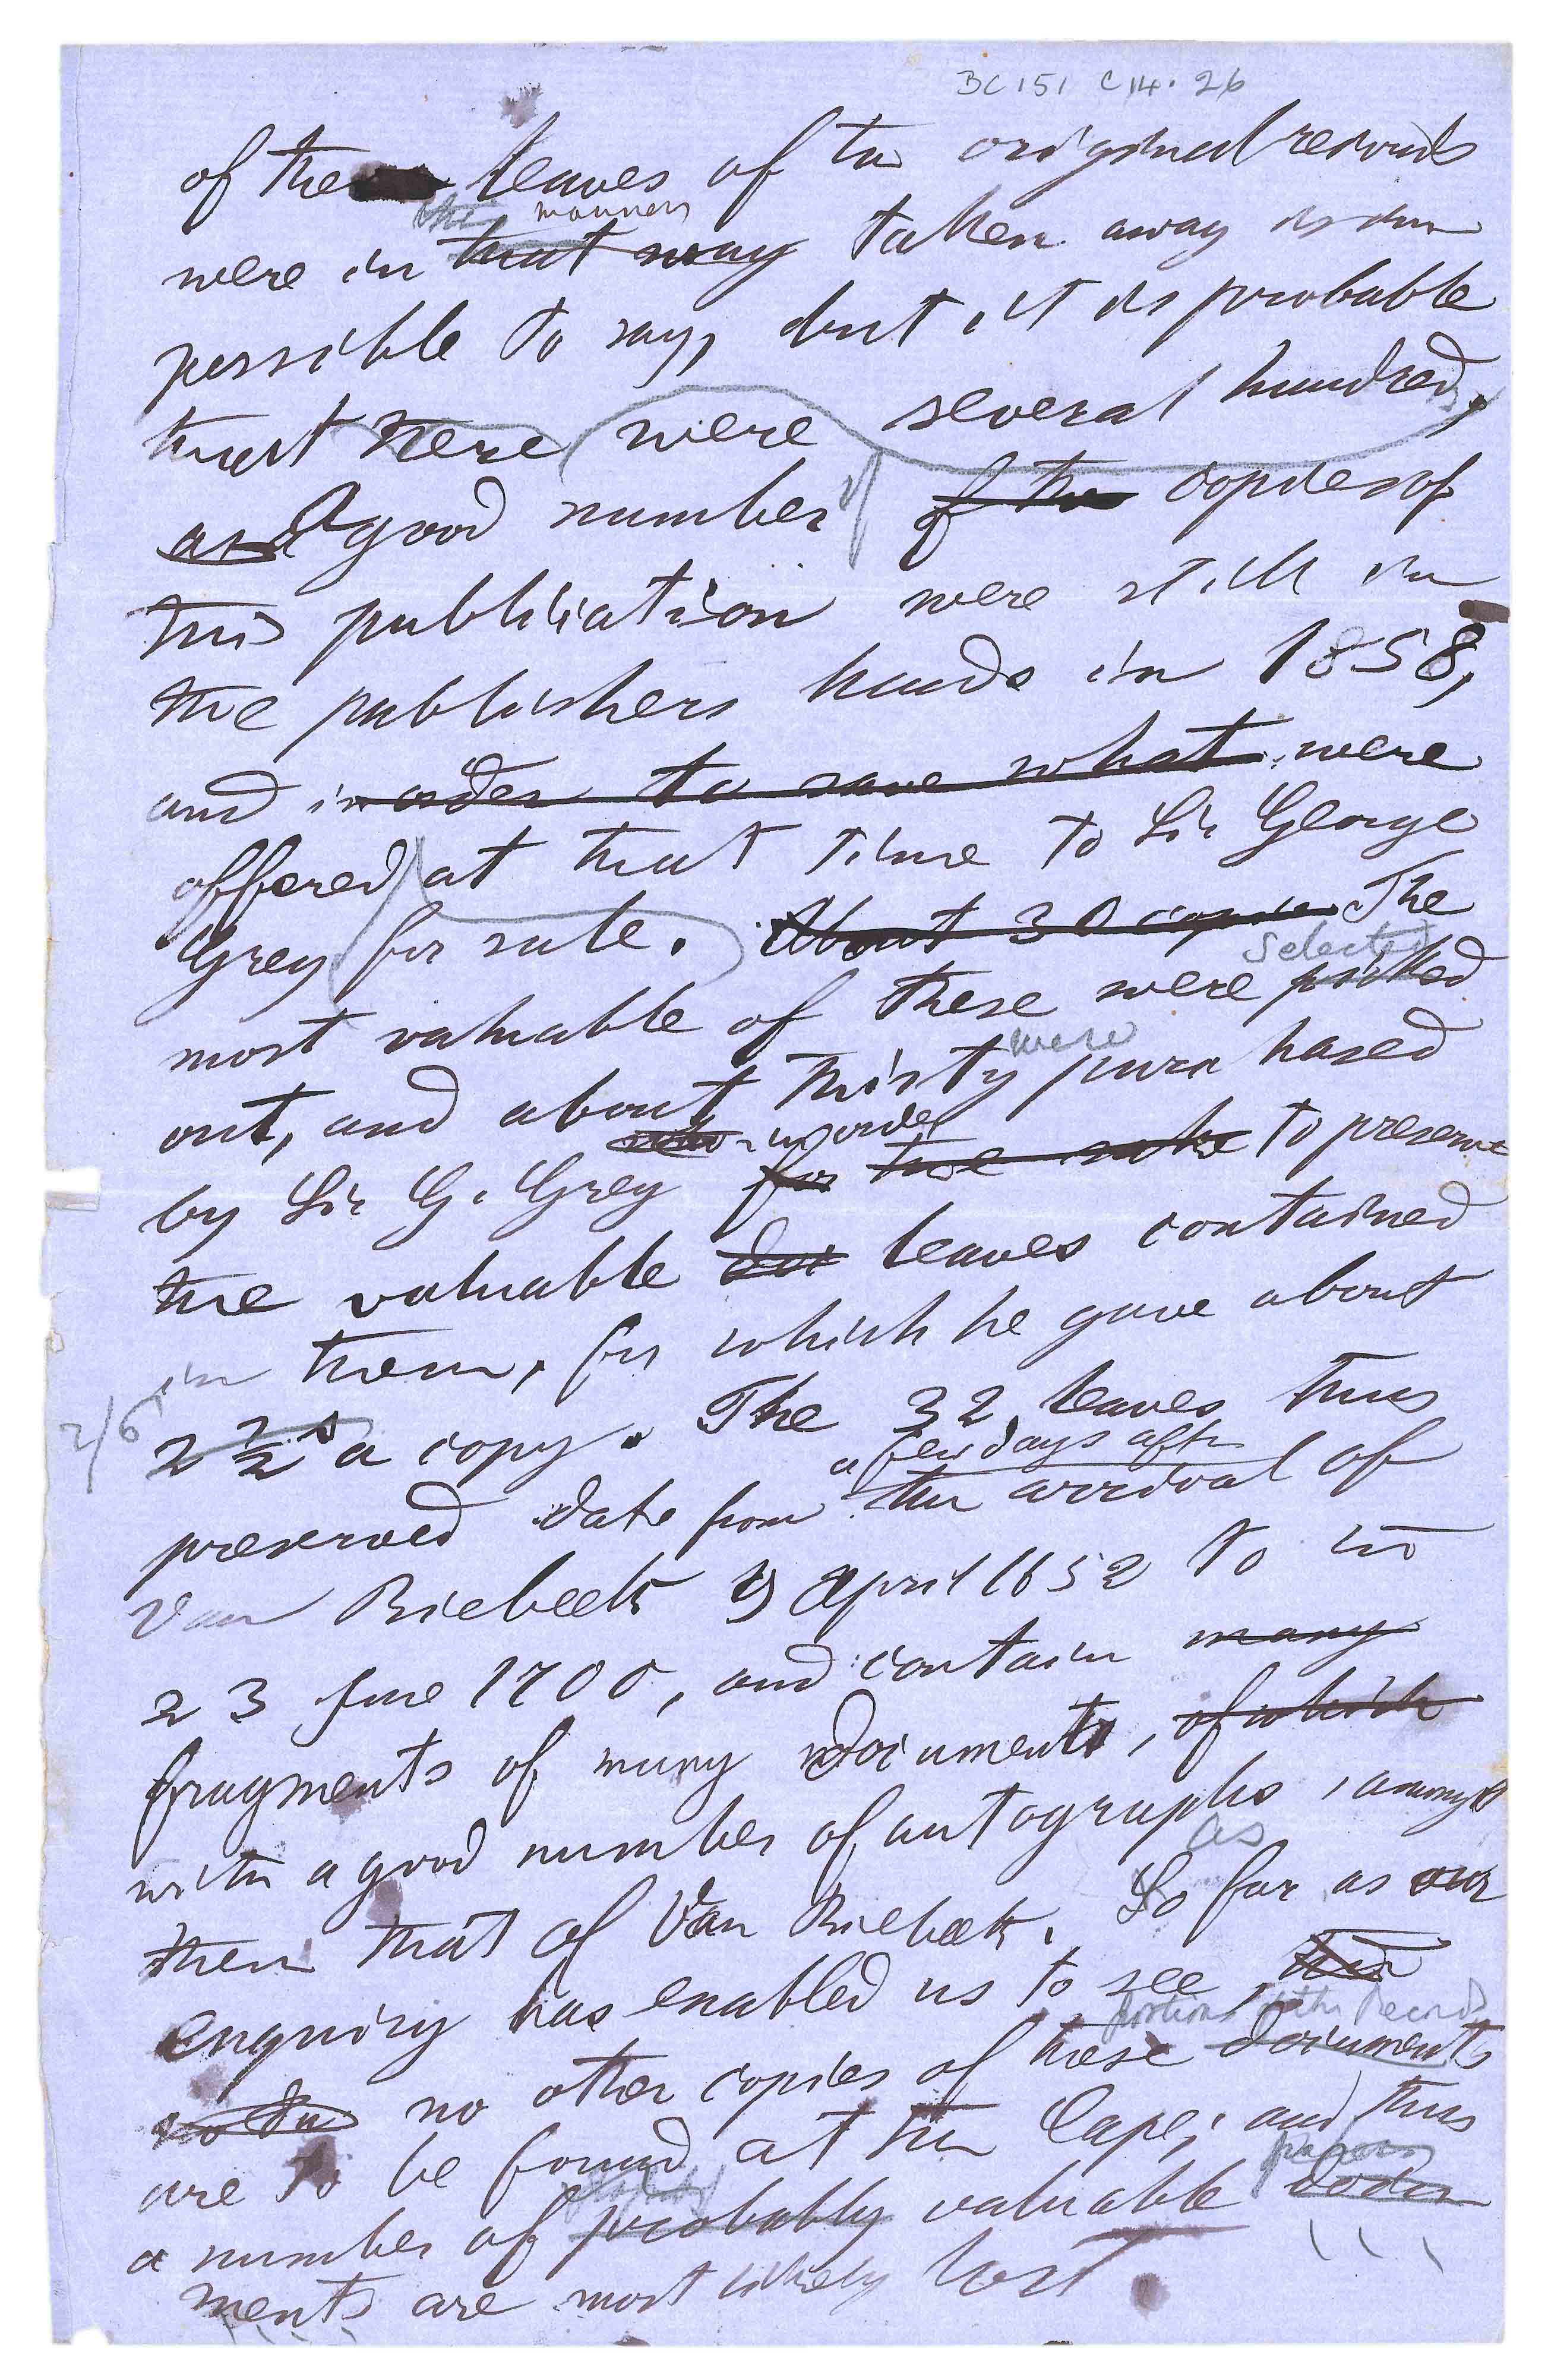 BC 151 C14.26
of the leaves of the original records
this manner
were in that way taken away is im
possible to say, but it is probable
that there were several hundred,
and A good number of the copies of
this publication were still in
the publishers hands in 1858,
and in order to save what were
offered at that time to Sir George
Grey for sale. About 30 copies The
selected
most valuable of these were picked
were
out, and about thirty purchased
in order
by Sir G. Grey for the sake to preserve
the valuable doc leaves contained
in them, for which he gave about
2/6
2 1/2 s a copy. The 32 leaves thus
a few days after
preserved date from the arrival of
Van Riebeek 9 April 1652 to the
23 June 1700, and contain many
fragments of many documents, of which
with a good number of autographs, amongst
as
them that of Van Riebeek. So far as our
enquiry has enabled us to see, the
portions of the Records
no other copies of these documents
are to be found at the Cape; and thus
papers
a number of probably valuable docu
ments are most likely lost